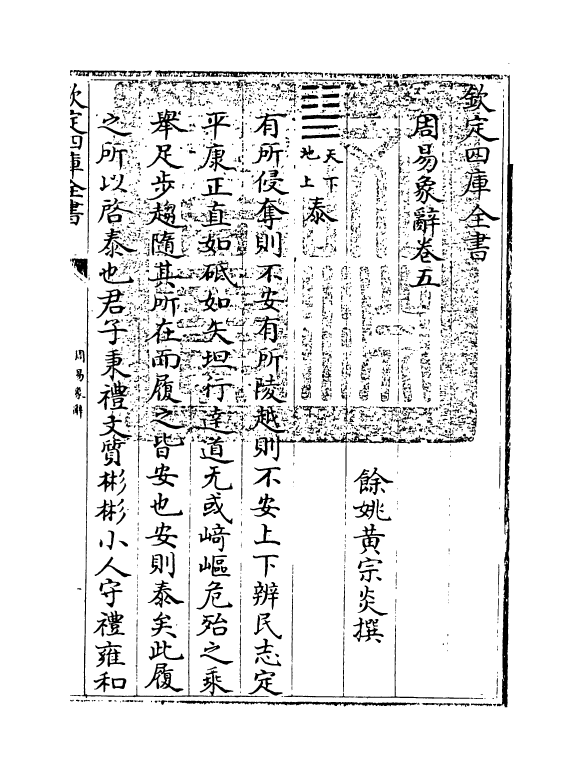 欽定四庫全書
周易象辭卷五
餘姚黃宗炎撰
天下
地上
泰
有所侵奪則不安有所陵越則不安上下辨民志定
平康正直如砥如矢坦行達道无或﨑嶇危殆之乘
舉足步趨隨其所在而履之皆安也安則泰矣此履
之所以啓泰也君子秉禮文質彬彬小人守禮雍和
欽定四庫全書
周易象辭